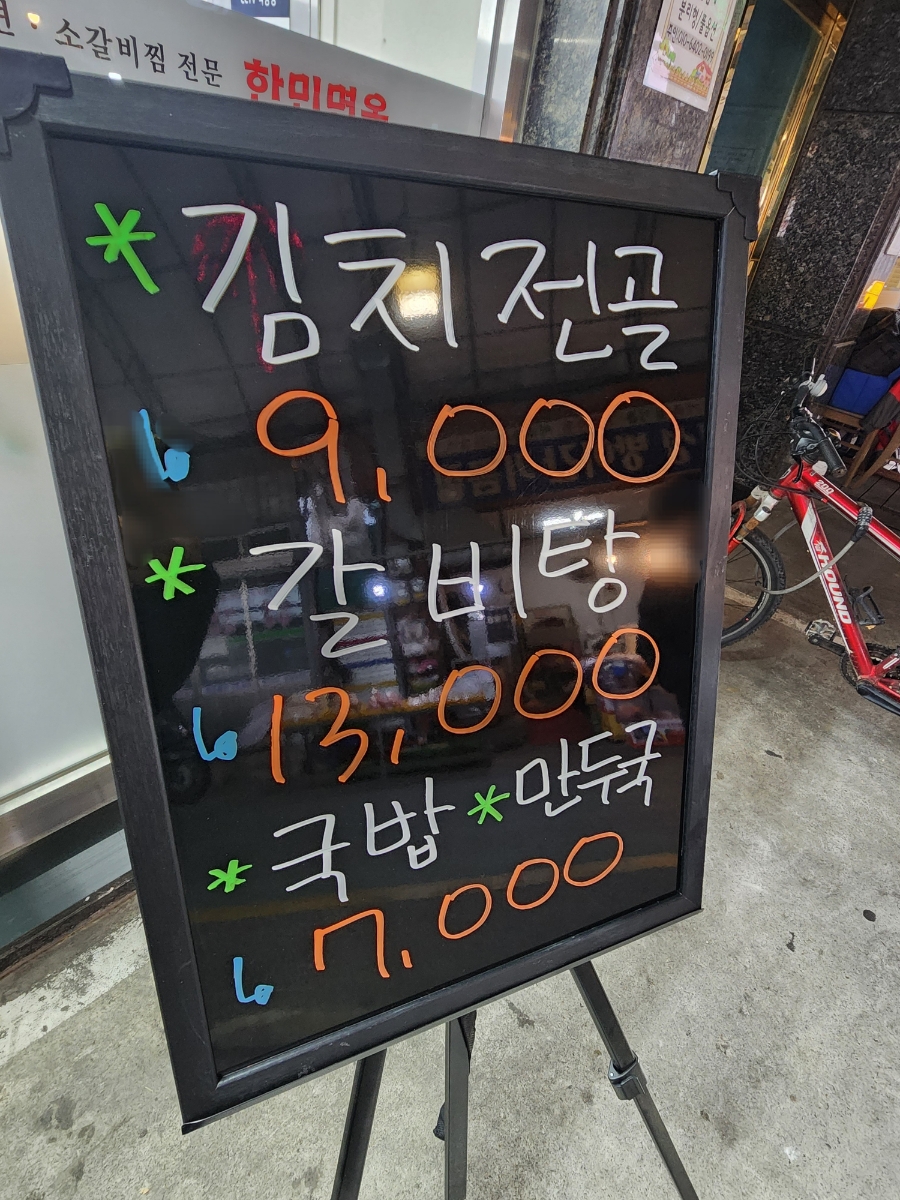 소갈비찜 전문 한미면옥
* 김치전골
↳ 9,000
* 갈비탕
↳ 13,000
* 국밥 * 만두국
↳ 7,000
200
KROUND